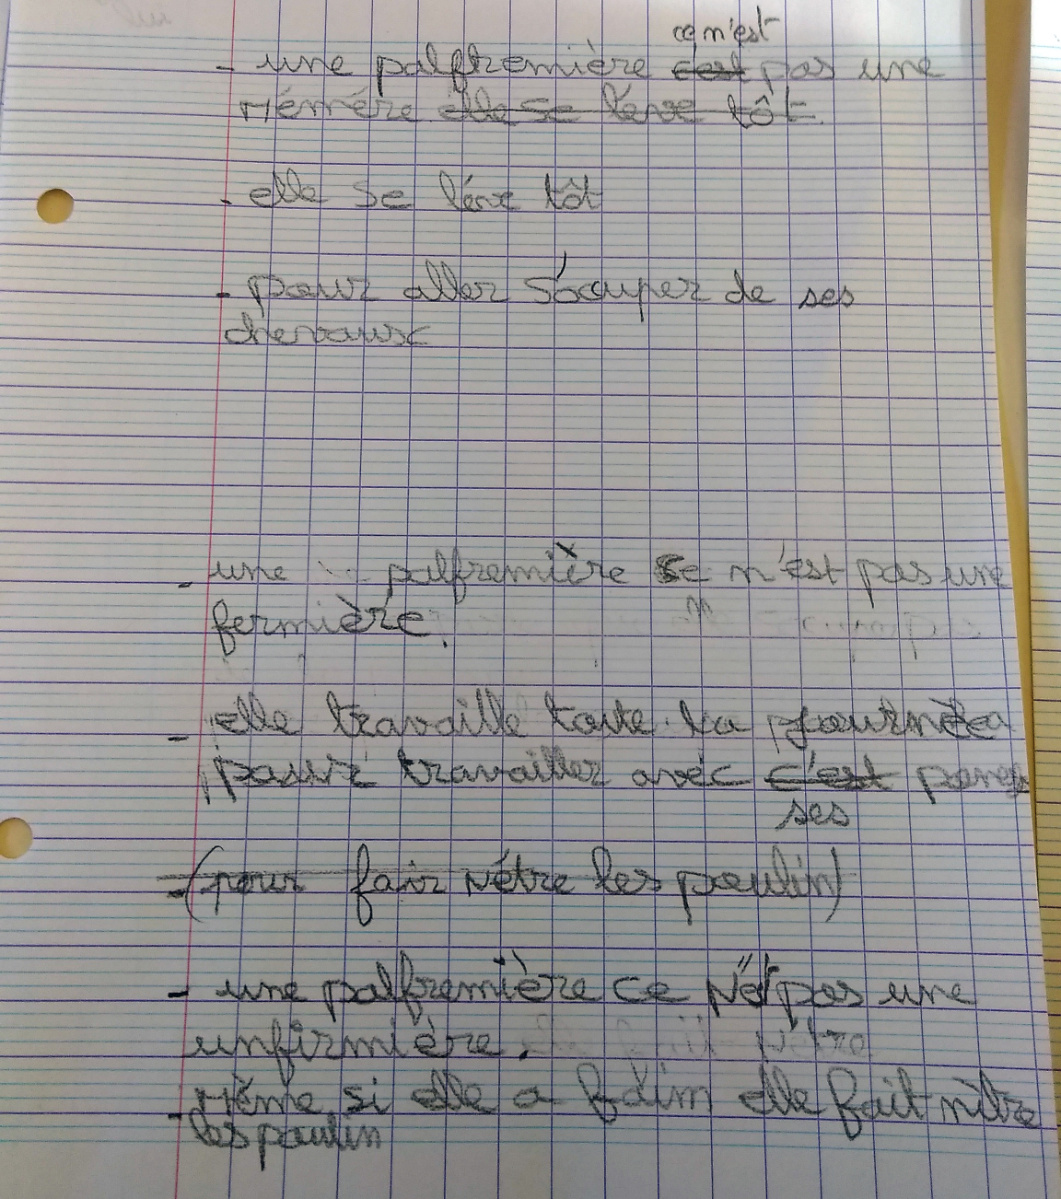 ce n'est
- une palfremière c'est pas une
Mémére elle se lève tôt.
- elle se léve tôt
- pour aller s'ocuper de ses
chevaux
- une palfremière se n'est pas une
fermière.
- elle travaille toute la journéea
pour travailler avéc c'est
ses
- (pour fair nétre les poulin)
- une palfremière ce n'ét pas une
unfirmière.
- Même si elle a faim elle fait nètre
les poulin